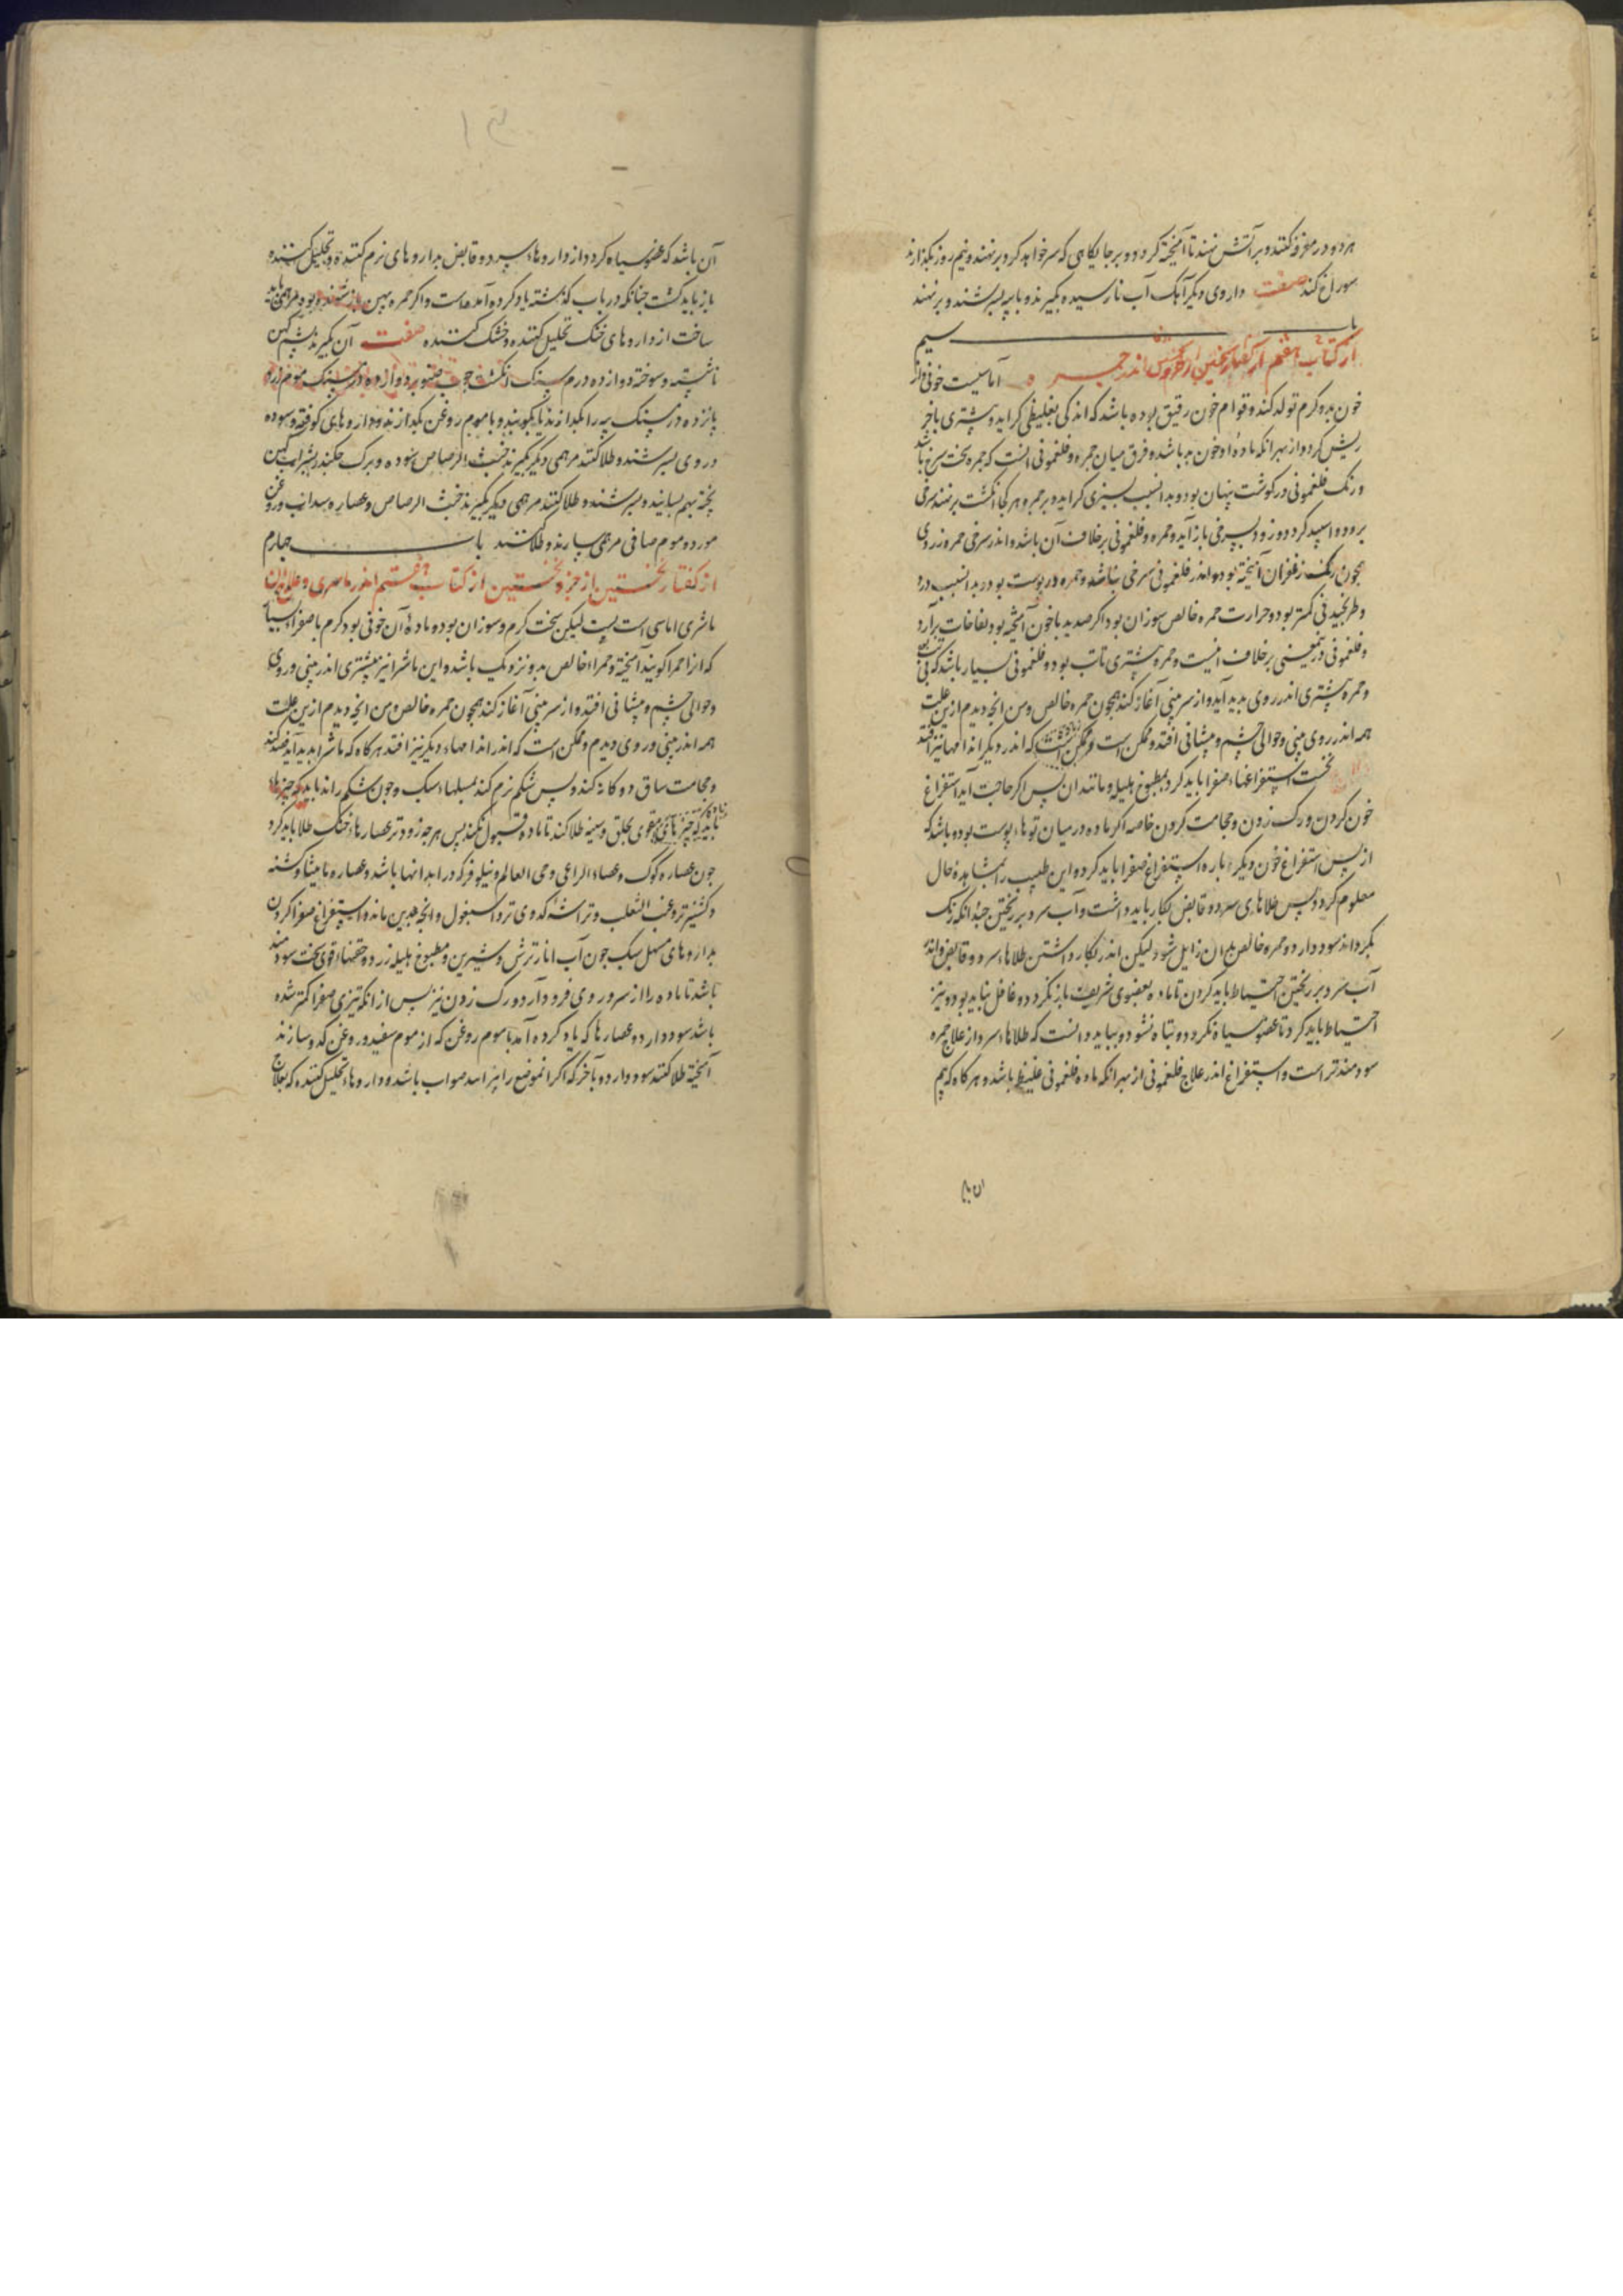 هر دو در مغرفه کنند و بر آتش نهند تا آمیخته گردد و بر جایگاهی که سر خواهد کرد بر نهند و نیم روز بگذارند
سوراخ کند صفت داروی دیگر آهک آب نارسیده بگیرند و با پیه بسرشند و بر نهند
باب سیم
از کتاب هفتم از گفتار نخستین از جزو نخستین اندر حمره آماسیست خونی و از
خون بد و گرم تولد کند و قوام خون رقیق بوده باشد که اندکی بغلیظی گراید و بیشتری باخر
ریش گردد از بهر انکه ماده او خون بد باشد و فرق میان حمره و فلغمونی انست که حمره سخت سرخ باشد
و رنگ فلغمونی در گوشت پنهان بود و بدانسبب بسبزی گراید و بر حمره هر کجا انگشت بر نهند سرخی
برود و اسپید گردد و زود بسرخی باز آید و حمره و فلغمونی بر خلاف آن باشد و اندر سرخی حمره زردی
همچون رنگ زعفران آمیخته بود و اندر فلغمونی سرخی نباشد و حمره در پوست بود بدانسبب درد
و طرنجیدنی کمتر بود و حرارت حمره خالص سوزان بود اگر صدید با خون آمیخته بود نفاخات برآرد
و فلغمونی در بمعنی بر خلاف اینست و حمره بیشتری تاب بود و فلغمونی بسیار باشد که بی تب
و حمره بیشتری اندر روی پدید آید و از سر بینی آغاز کند همچون حمره خالص و من انچه دیدم ازین علت
همه اندر روی بینی و حوالی چشم و پیشانی افتد و ممکن است و ممکن است که اندر دیگر اندامها نیز افتد
نخست استفراغهاء صفرا باید کرد بمطبوخ هلیله و مانند ان پس اگر حاجت آید استفراغ
خون کردن و رگ زدن و حجامت کردن خاصه اگر ماده در میان توهاء پوست بود و باشد که
از پس استفراغ خون دیگر باره استفراغ صفرا باید کرد و این طبیب را بمشاهده حال
معلوم گردد پس طلاهای سرد و قابض بکار باید داشت و آب سرد بر ریختن چندانکه رنگ
بگرداند سود دارد و حمره خالص بدان زایل شود لیکن اندر بکار داشتن طلاهاء سرد و قابض و اندر
آب سرد بر ریختن احتیاط باید کردن تا ماده بعضوی شریف باز نگردد و غافل نباید بود و نیز
احتیاط باید کرد تا عضو سیاه نگردد و تباه نشود و بباید دانست که طلاهاء سرد از علاج حمره
سودمندتر است و استفراغ اندر علاج فلغمونی از بهر انکه ماده فلغمونی غلیظ باشد و هر گاه که بیم
ان با
آن باشد که عضو سیاه گردد از داروهاء سرد و قابض بداروهای نرم کننده و تحلیل کننده
باز باید گشت چنانکه در باب گذشته یاد کرده آمده است و اگر حمره بهین باز شنده بود مرهمی باید
ساخت از داروهای خنک تحلیل کننده و خشک کننده صفت آن بگیرند پشم کهن
ناشسته و سوخته دوازده درم سنگ انگشت چوب صنوبر دوازده درم سنگ موم زرد
پانزده درم سنگ پیه را بگدازند یا بکوبند و با موم روغن بگدازند و داروهای کوفته و سوده
در وی بسرشند و طلا کنند مرهمی دیگر بگیرند خبث الرصاص سوده و برگ چکندر بشراب کهن
پخته بهم بسایند و بسرشند و طلا کنند مرهمی دیگر بگیرند خبث الرصاص و عصاره سداب و روغن
مورد و موم صافی مرهمی سازند و طلا کنند باب چهارم
از گفتار نخستین از جزو نخستین از کتاب هفتم اندر ماشری و علاج ان
ماشری اماسی است لیکن سخت گرم و سوزان بود و ماده آن خونی بود گرم با صفراء بسیار
که انرا حمرا گویند آمیخته و حمراء خالص بدو نزدیک باشد و این ماشرا نیز بیشتری اندر بینی و روی
و حوالی چشم و پیشانی افتد و از سر بینی آغاز کند همچون حمره خالص و من انچه دیدم ازین علت
همه اندر بینی و روی دیدم و ممکن است که اندر اندامهاء دیگر نیز افتد هر گاه که ماشرا پدید آید فصد کند
و حجامت ساق دوگانه کند و پس شکم نرم کند بمسهلهاء سبک و چون شکم راند باید که چیزها
باید که چیزهای مقوی بحلق و سینه طلا کند تا ماده قبول نکند پس هر چه زودتر عصارهاء خنک طلا باید کرد
چون عصاره کوک و عصاء الراعی و حی العالم و نیلوفر که در ابدانها باشد و عصاره مامیثا و شنه
و گشنیز تر و عنب الثعلب و تراشه کدوی تر و اسبغول و انچه بدین ماند و استفراغ صفرا کردن
بداروهای مسهل سبک چون آب انار ترش و شیرین و مطبوخ هلیله زرد و حقنهاء قوی سخت سودمند
باشد تا ماده را از سر و روی فرود آرد و رگ زدن نیز پس از انکه تیزی صفرا کمتر شده
باشد سود دارد و عصارها که یاد کرده آمد با موم روغن که از موم سفید و روغن کدو سازند
آمیخته طلا کنند سود دارد و باخر که اگر انموضع را نیز اسد صواب باشد و داروهاء تحلیل کننده که بعلاج